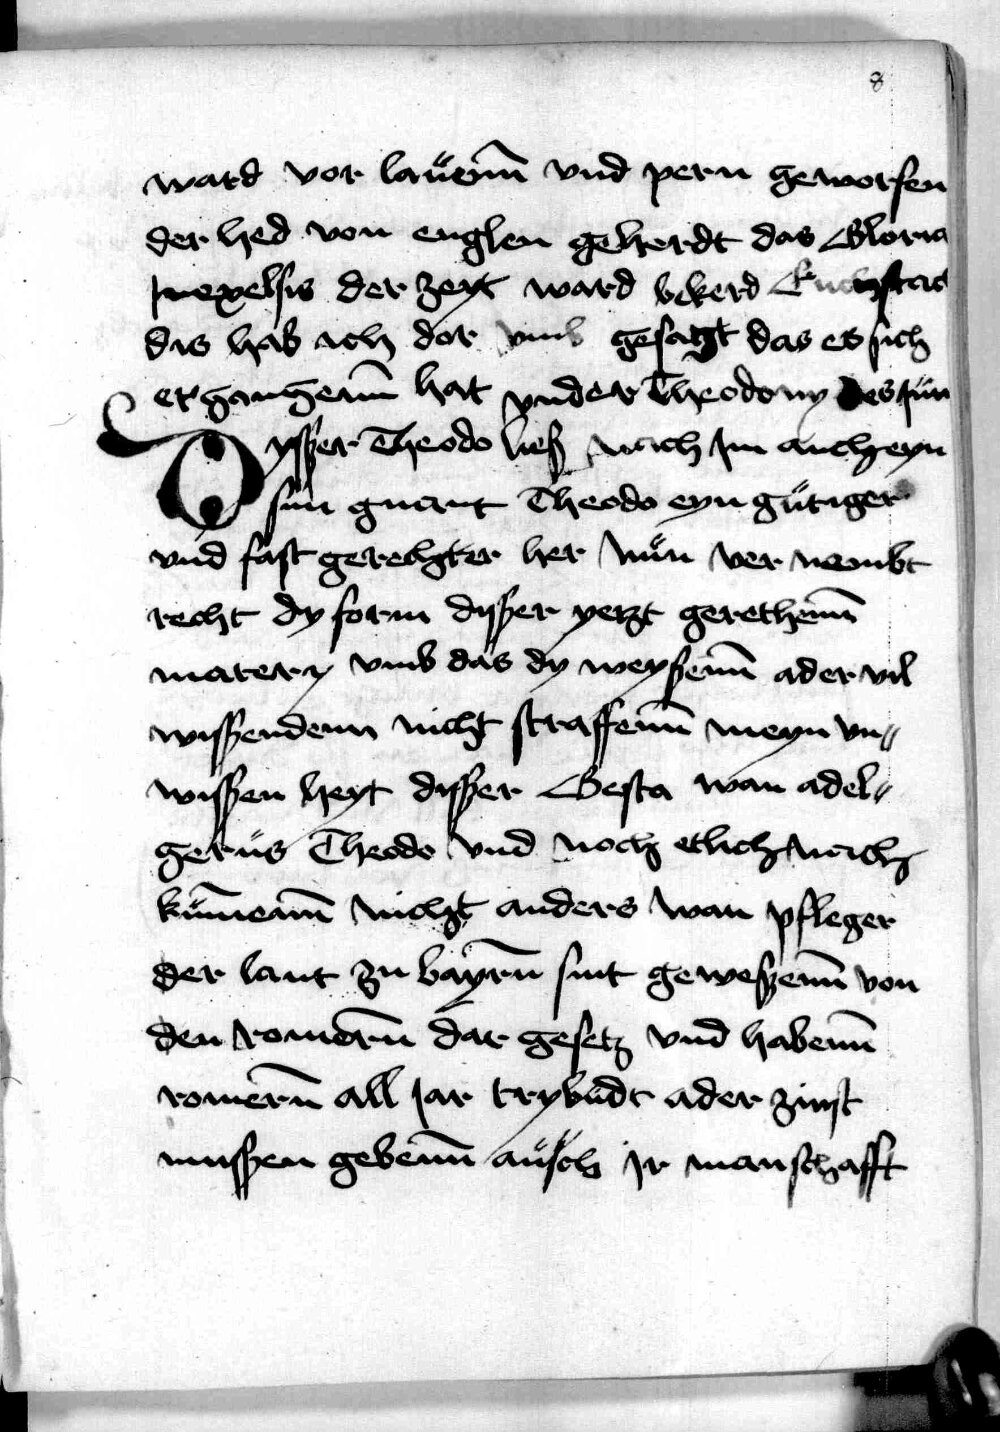 8
ward vor laüenn̄ vnd pern geworfen
der hed von englen geherdt das Gloria
Inexelsis der zeyt ward bekerd
das hab ich dor vmb gesagt das es sich
ergangenn̄ hat vnder Theodony des Jün
Dysser Theodo lies nach Im auch eyn
sun gnant Theodo eyn gütiger
vnd fast gerechter her Nün ver nembt
recht dy form dysser yetzt gerethenn̄
matery vmb das dy weyssenn̄ ader vil
wissendenn nicht straffenn̄ meyn vn„
wissen heyt dysser Gesta wan adel„
gerüs Theodo vnd noch etlich nach
kümenn̄ nicht anders wan pfleger
der lant zu bayrn̄ sint gewessenn̄ von
den romern̄ dar gesetz vnd habenn̄
romern̄ all Jar trybudt ader zinst
mussen gebenn̄ aüsch ir manschafft